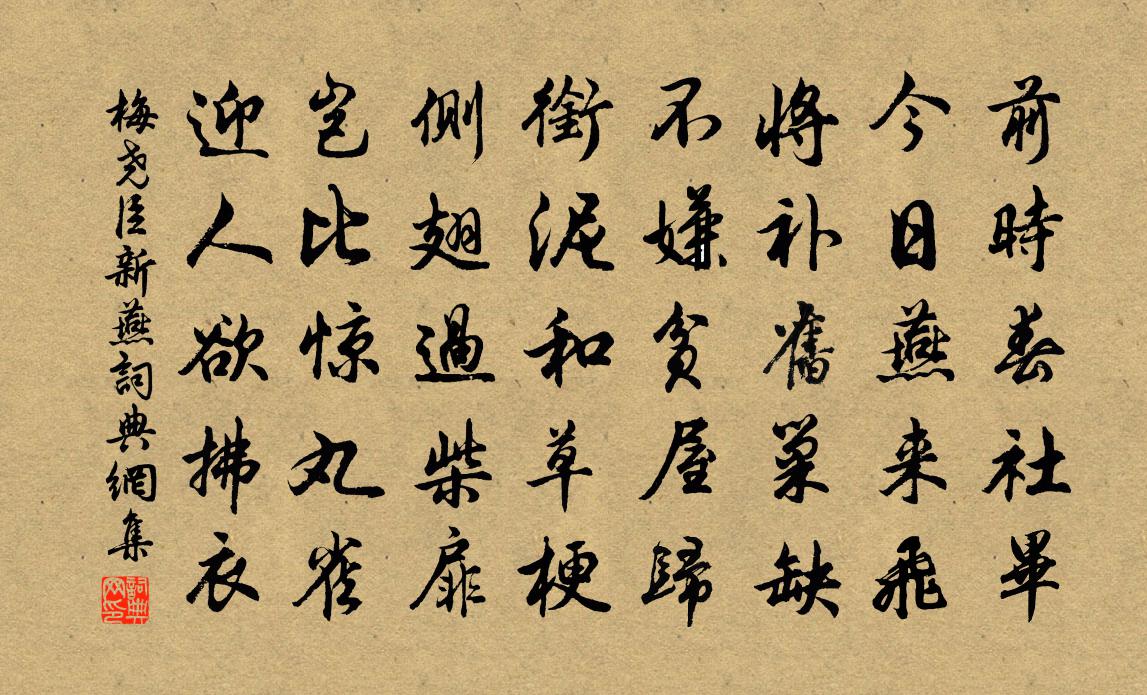 前時春社畢
今日燕来飛
將补舊巢缺
不嫌貧屋歸
銜泥和草梗
側翅過柴扉
豈比惊丸雀
迎人欲拂衣
梅尧臣新燕詞典網集
詞典网印